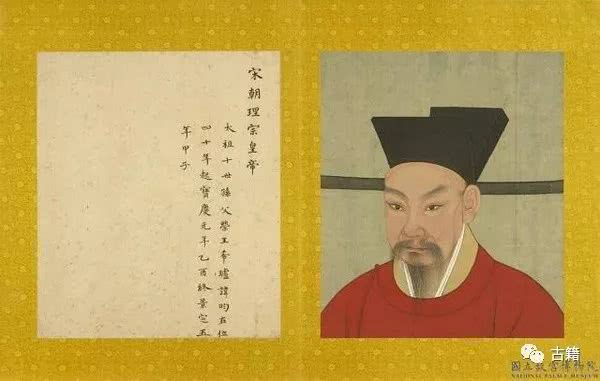 宋朝理宗皇帝
太祖十世孫父榮王希瓐諱昀在位
四十年起寶慶元年乙酉終景定五
年甲子
古籍
國立故宮博物院
NATIONAL PALACE MUSEUM